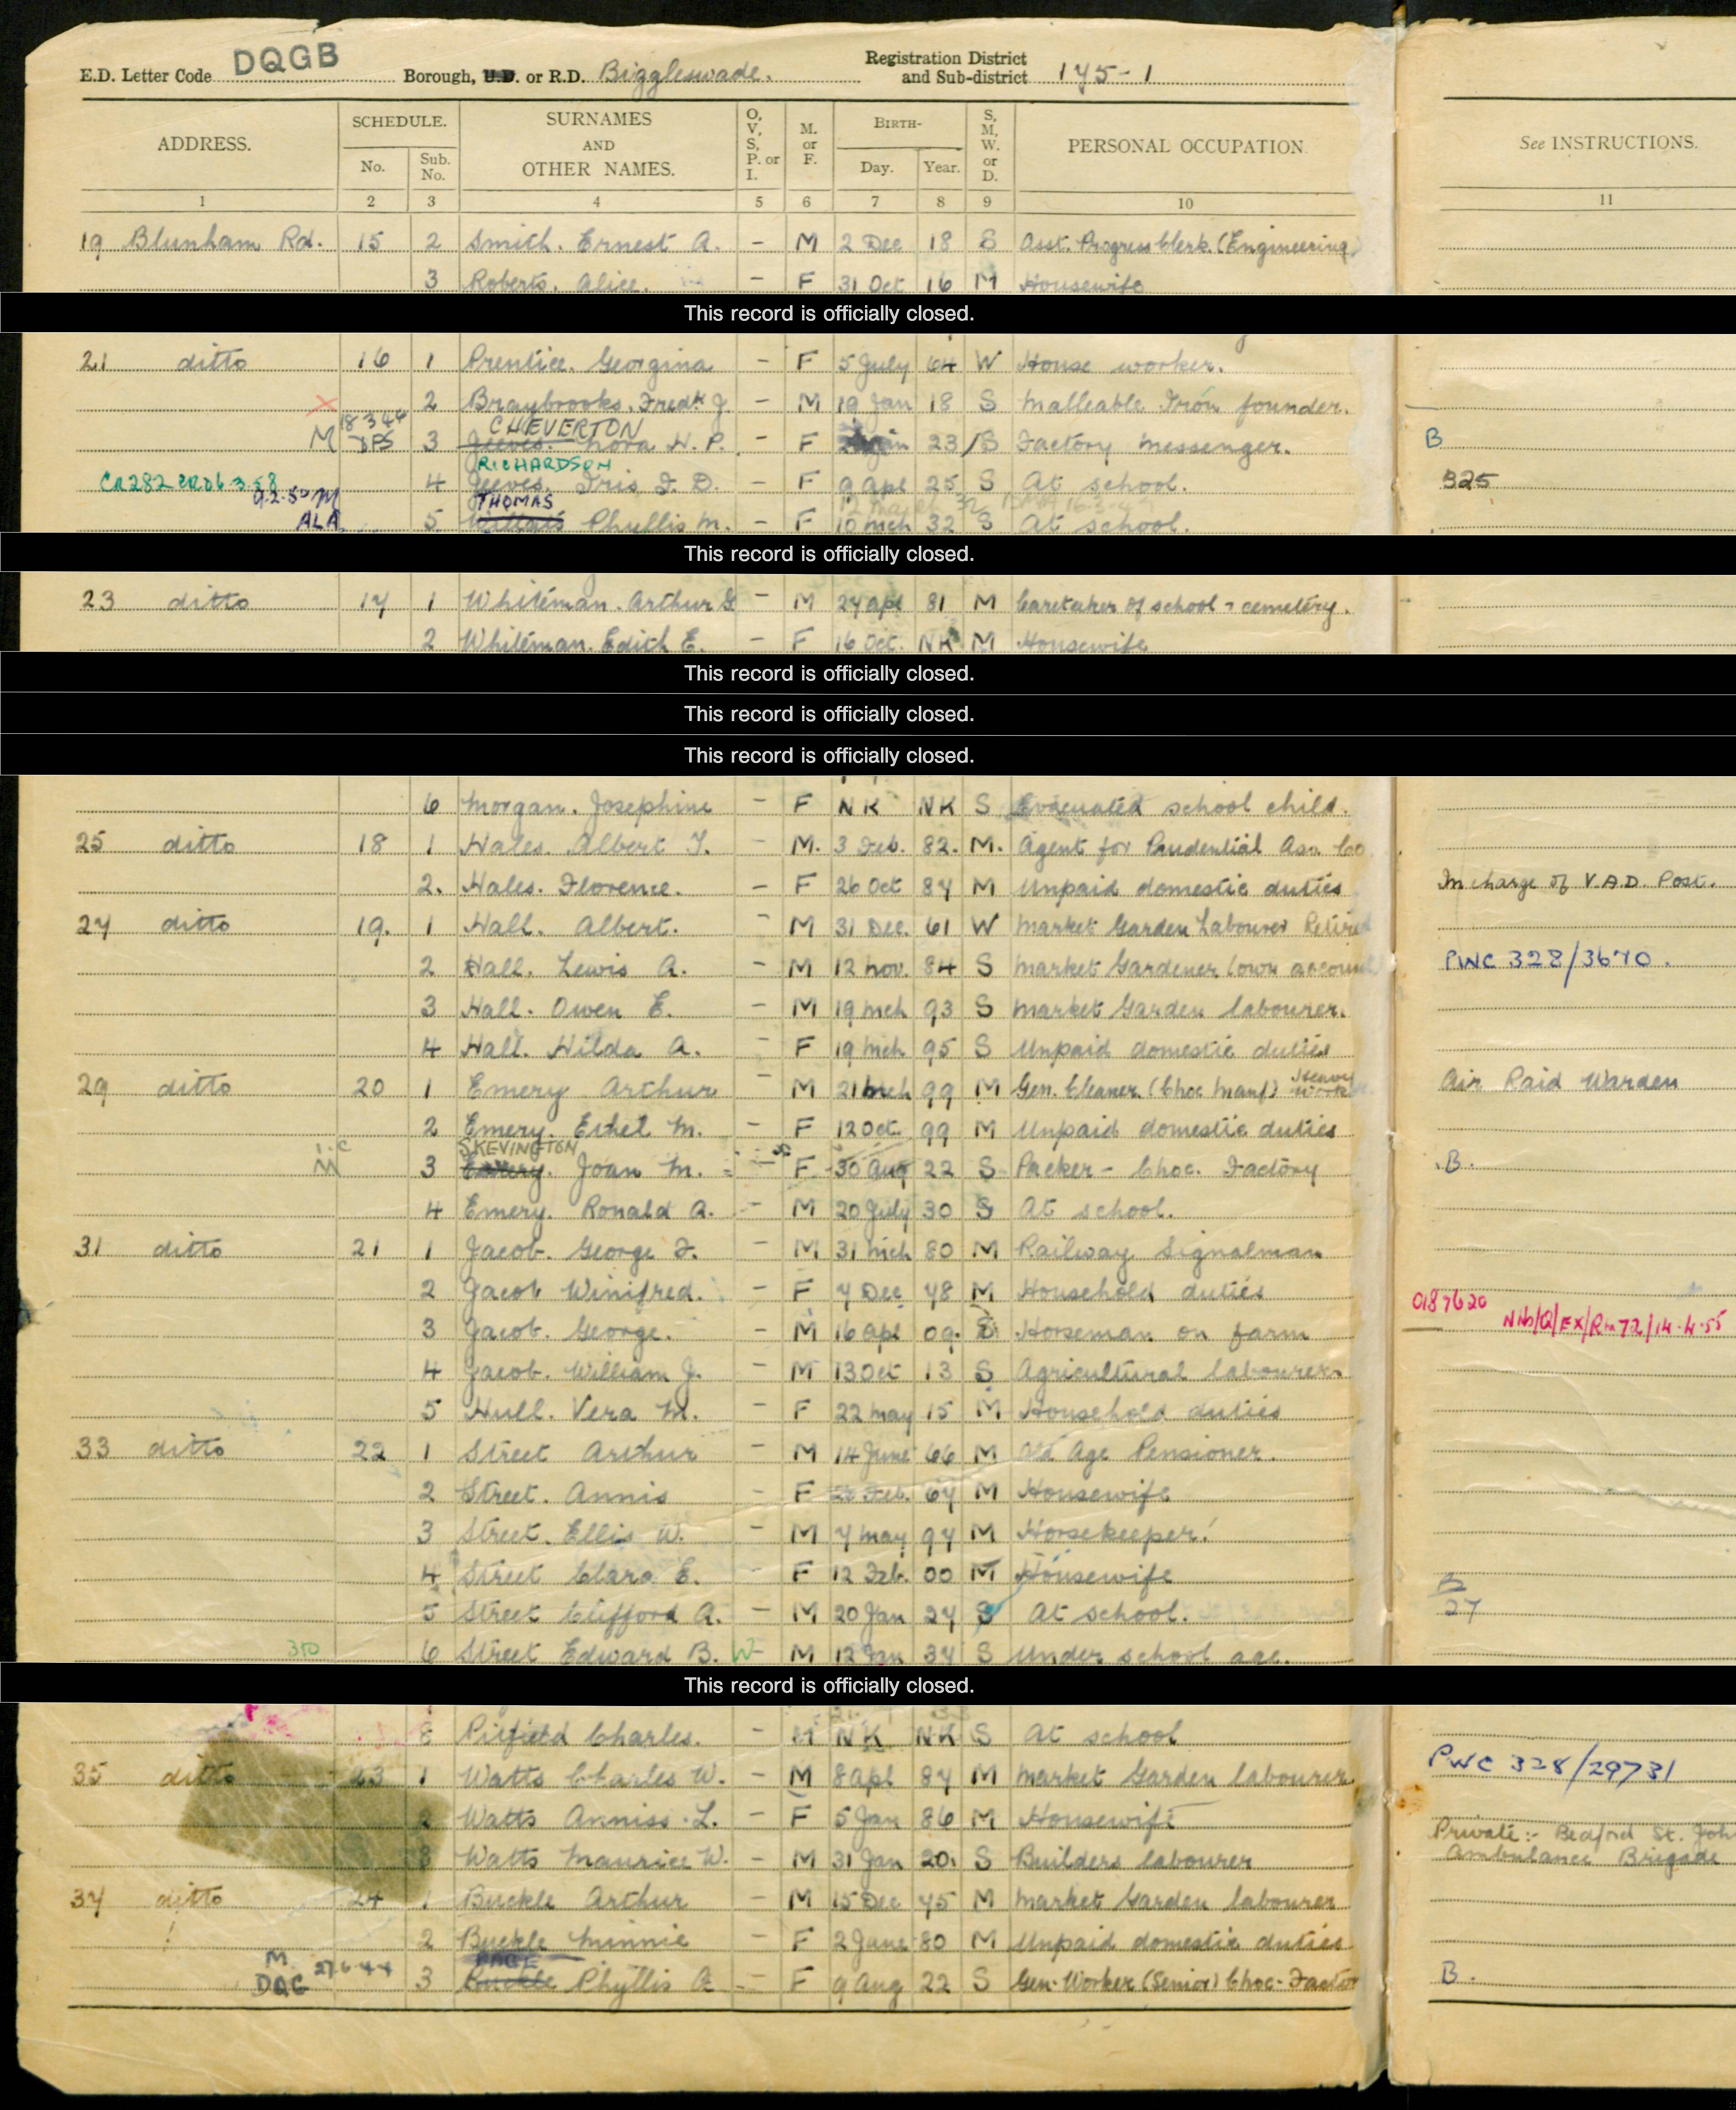 E.D. Letter Code DQGB Borough, U.D. or R.D. Biggleswade. Registration District and Sub-district 175-1
ADDRESS. SCHEDULE. No. Sub. No. SURNAMES AND OTHER NAMES. O, V, S, P. or I. M. or F. BIRTH- Day. Year. S, M, W. or D. PERSONAL OCCUPATION. See INSTRUCTIONS.
1 2 3 4 5 6 7 8 9 10 11
19 Blunham Rd. 15 2 Smith. Ernest A. - M 2 Dec 18 S Asst. Progress Clerk. (Engineering)
3 Roberts. Alice. - F 31 Oct 16 M Housewife
This record is officially closed.
21 ditto 16 1 Prentice. Georgina - F 5 July 64 W House worker.
2 Braybrooks. Fredk J. - M 19 Jan 18 S Malleable Iron founder.
18 3 44 CHEVERTON
M DPS 3 Jeeves. Nora H. P. - F 23 S Factory Messenger. B
RICHARDSON
CR282 CRD 6.3.58 4 Jeeves. Iris J. D. - F 9 Apl 25 S At school. 325
9.2.50 M THOMAS 12 March 32
ALA 5 Phyllis M. - F 10 Mch 32 S At school.
This record is officially closed.
23 ditto 17 1 Whiteman. Arthur G - M 27 Apl 81 M Caretaker of school & cemetery.
2 Whiteman. Edith E. - F 16 Oct. NK M Housewife
This record is officially closed.
This record is officially closed.
This record is officially closed.
6 Morgan. Josephine - F NK NK S Evacuated school child.
25 ditto 18 1 Hales. Albert T. - M. 3 Feb. 82. M. Agent for Prudential Ass. Co
2. Hales. Florence. - F 26 Oct 87 M Unpaid domestic duties In charge of V.A.D. Post.
27 ditto 19. 1 Hall. Albert. - M 31 Dec. 61 W Market Garden Labourer Retired
2 Hall. Lewis A. - M 12 Nov. 84 S Market Gardener (own account) PWC 328/3670.
3 Hall. Owen E. - M 19 Mch 93 S Market Garden labourer.
4 Hall. Hilda A. - F 19 Mch 95 S Unpaid domestic duties
29 ditto 20 1 Emery Arthur - M 21 Mch 99 M Gen. Cleaner. (Choc Manf) Heavy work Air Raid Warden
2 Emery. Ethel M. - F 12 Oct 99 M Unpaid domestic duties
SKEVINGTON
M 3 Emery. Joan M. - F 30 Aug 22 S Packer - Choc. Factory B.
4 Emery. Ronald A. - M 20 July 30 S At school.
31 ditto 21 1 Jacob. George F. - M 31 Mch 80 M Railway Signalman
2 Jacob Winifred. - F 7 Dec 78 M Household duties
3 Jacob. George. - M 16 Apl 09. S Horseman on farm 0187620 NNb/Q/EX/Rm72/14.4.55
4 Jacob. William J. - M 13 Oct 13 S Agricultural labourer
5 Hull. Vera M. - F 22 May 15 M Household duties
33 ditto 22 1 Street Arthur - M 14 June 66 M Old Age Pensioner.
2 Street. Annis - F Feb. 67 M Housewife
3 Street. Ellis W. - M 7 May 97 M Horsekeeper.
4 Street Clara E. - F 12 Feb. 00 M Housewife
5 Street Clifford A. - M 20 Jan 27 S At school. B 27
310 6 Street Edward B. W - M 12 Jan 37 S Under school age.
This record is officially closed.
8 Pitfield Charles. - M NK NK S At school
35 ditto 23 1 Watts Charles W. - M 8 Apl 87 M Market Garden labourer PWC 328/29731
2 Watts Anniss L. - F 5 Jan 86 M Housewife Private:- Bedford St. Joh
3 Watts Maurice W. - M 31 Jan 20. S Builders labourer Ambulance Brigade
37 ditto 24 1 Buckle Arthur - M 15 Dec 75 M Market Garden labourer
2 Buckle Minnie - F 2 June 80 M Unpaid domestic duties
M 27.6.44 PAGE
DQG 3 Buckle Phyllis A - F 9 Aug 22 S Gen. Worker (Senior) Choc. Factor B.